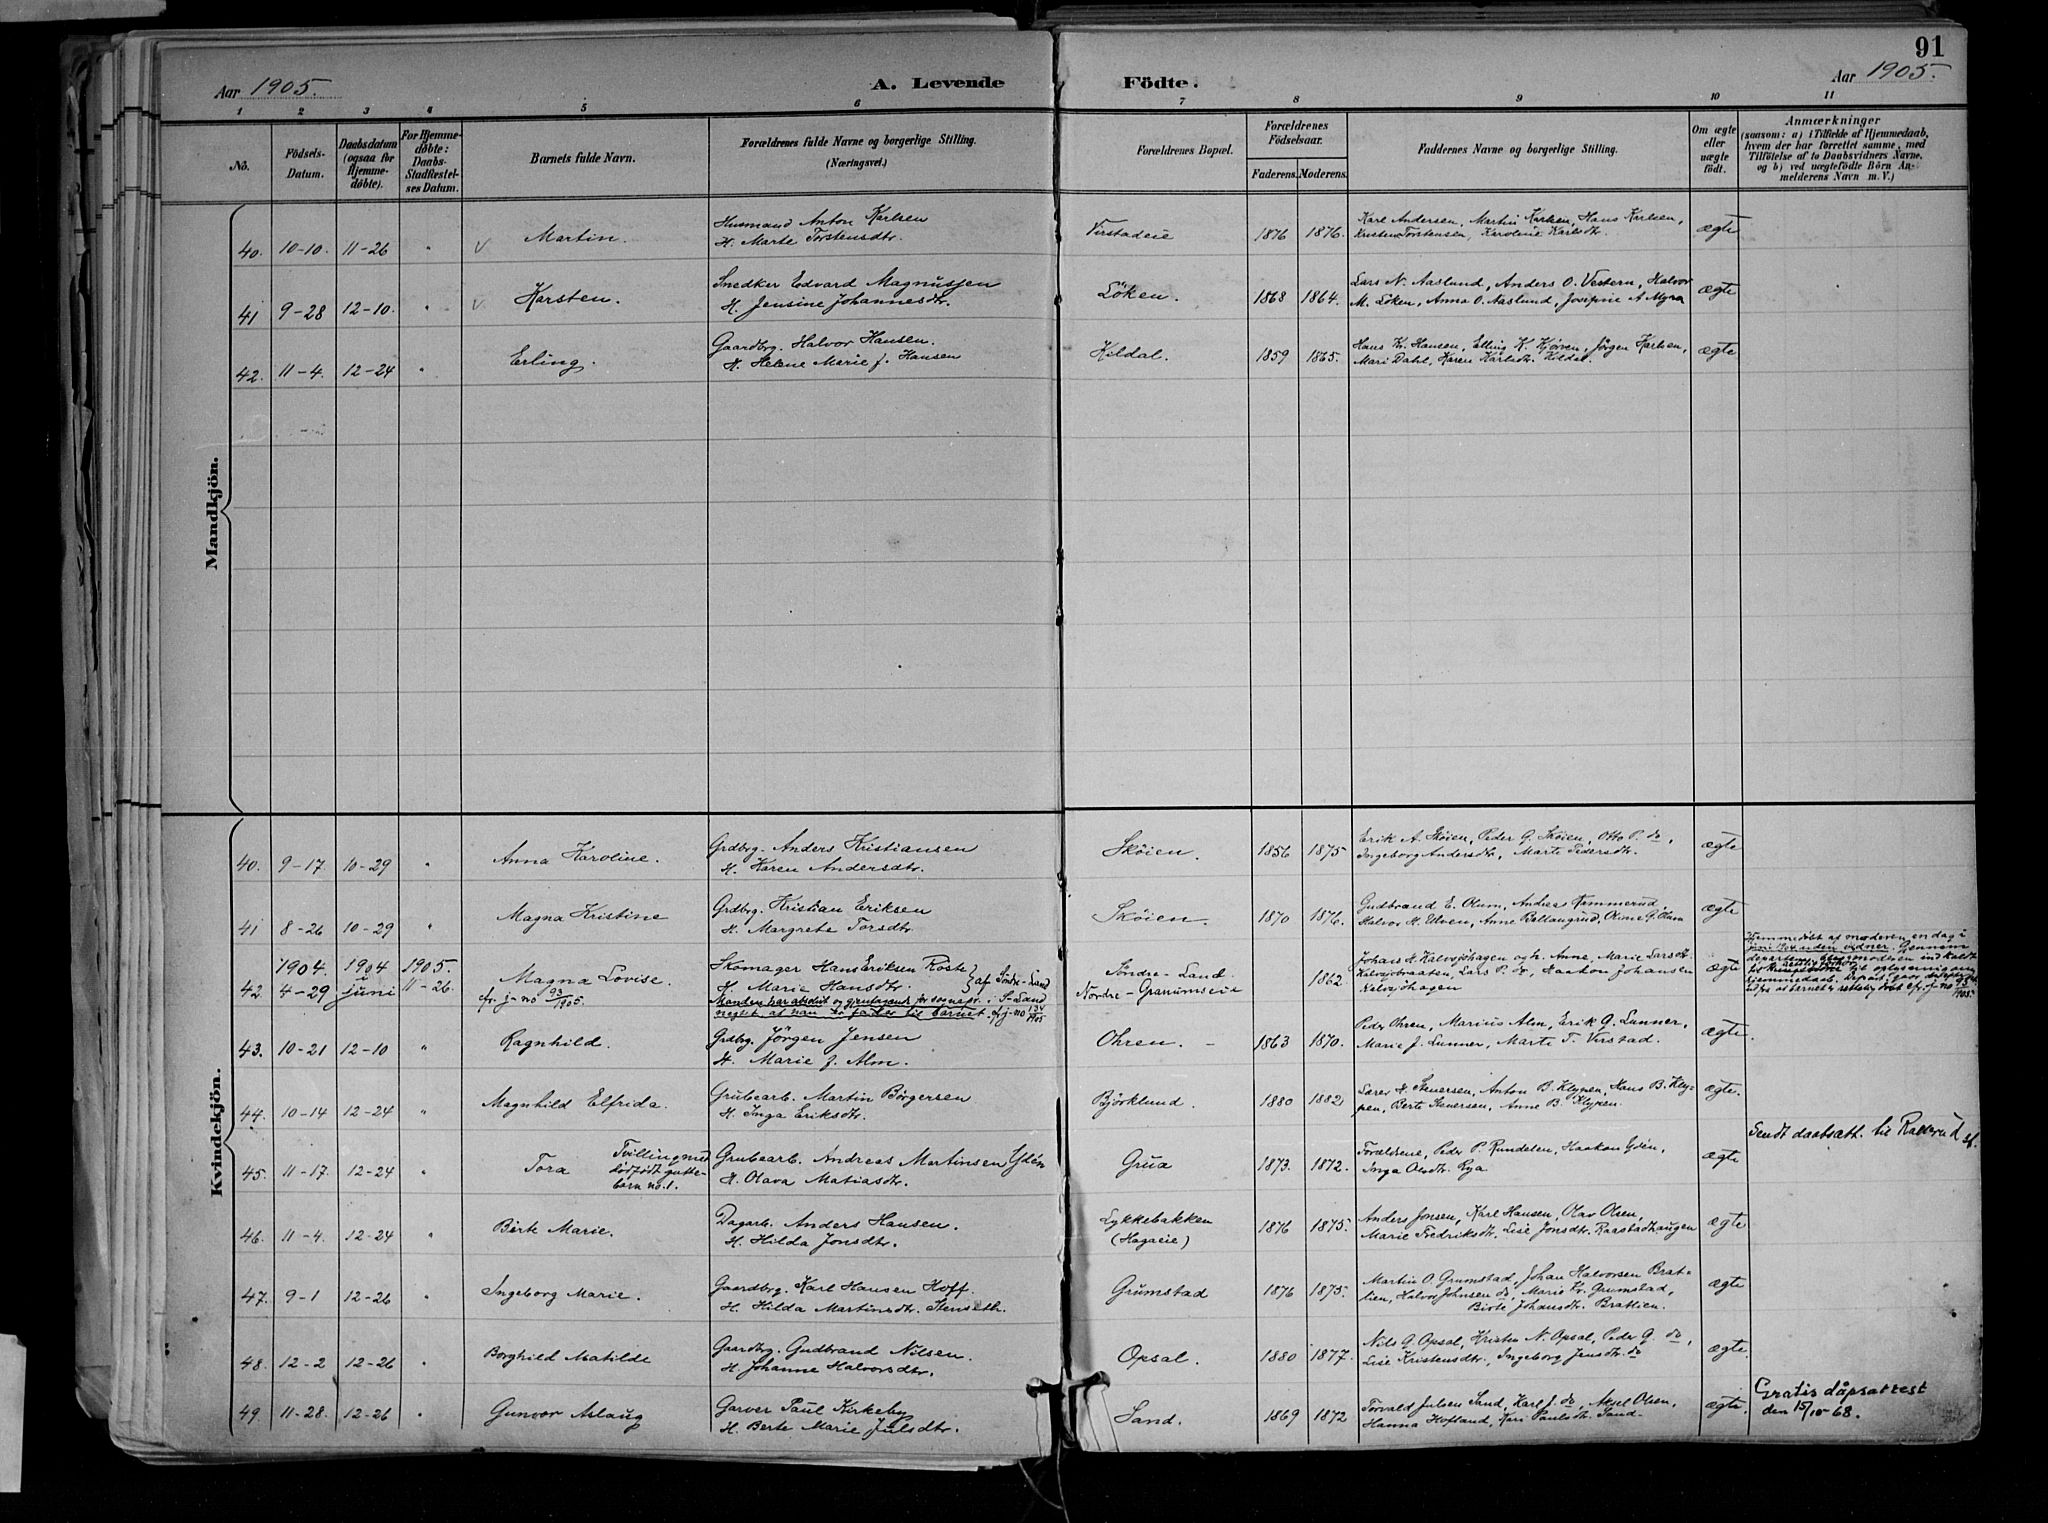 91
Aar 1905.
A. Levende Födte.
Aar 1905.
1 2 3 4 5 6 7 8 9 10 11
No.
Födsels-
Datum.
Daabsdatum
(ogsaa for
Hjemme-
döbte).
For Hjemme-
döbte:
Daabs-
Stadfæstel-
ses Datum.
Barnets fulde Navn.
Forældrenes fulde Navne og borgerlige Stilling.
(Næringsvei.)
Forældrenes Bopæl.
Forældrenes
Födselsaar.
Faderens. Moderens.
Faddernes Navne og borgerlige Stilling.
Om ægte
eller
uægte
födt.
Anmærkninger
(saasom: a) i Tilfælde af Hjemmedaab,
hvem der har forrettet samme, med
Tilföielse af to Daabsvidners Navne,
og b) ved uægtefödte Börn An-
melderens Navn m. V.)
Mandkjön.
40. 10-10. 11-26 " v Martin.
Husmand Anton Karlsen
H. Marte Torstensdtr.
Virstadeie 1876 1876.
Karl Andersen, Martin Karlsen, Hans Karlsen,
Kristen Torstensen, Karoline Karlsdtr.
ægte
41 9-28 12-10. " v. Karsten.
Snedker Edvard Magnussen
H. Jensine Johannesdtr.
Löken. 1868 1864.
Lars N. Aaslund, Anders O. Vestern, Halvor
M. Löken, Anna O. Aaslund, Josefine A Myra
ægte
42. 11-4. 12-24 " Erling.
Gaardbrg. Halvor Hansen.
H. Helene Marie f. Hansen
Kildal. 1859 1865.
Hans Kr. Hansen, Elling K. Kjörven, Jörgen Karlsen,
Mari Dahl, Karen Karlsdtr. Kildal.
ægte
Kvindekjön.
40. 9-17. 10-29 " Anna Karoline.
Grdbrg. Anders Kristiansen
H. Karen Andersdtr.
Sköien. 1856 1875
Erik A. Sköien, Peder G. Sköien, Otto P. do,
Ingeborg Andersdtr, Marte Pedersdtr.
ægte
41 8-26 10-29 " Magna Kristine
Grdbrg. Kristian Eriksen
H. Margrete Torsdtr.
Sköien. 1870 1876.
Gudbrand E. Olum, Andreas Rammerud,
Halvor H. Elven, Anne Ballangrud, Oline G. Olum
ægte
1904. 1904 1905.
42 4-29 juni 11-26. Magna Lovise.
cfr. j-no 93/1905.
Skomager Hans Eriksen Roste
H. Marie Hansdtr. } af Söndre-Land
Manden har absolut og gjentagende for sognepr. i S-Land
negtet, at han er fader til barnet. cfr j-no 134/1905
Söndre-Land.
Nordre-Granumseie 1862.
Johans H. Halvsjöhagen og h. Anne, Marie Larsdtr.
Halvsjöbraaten, Lars P. do, Haakon Johansen
Halvsjöhagen
ægte
Hjemmedöbt af moderen en dag i
juni 1904 uden vidner. Gjennem
43. 10-21 12-10 " Ragnhild.
Grdbrg. Jörgen Jensen
H. Marie f. Alm.
Ohren. 1863 1870.
Peder Ohren, Marius Alm, Erik G. Lunner,
Marie J. Lunner, Marte T. Virstad.
ægte.
44. 10-14 12-24 " Magnhild Elfrida.
Grubearb. Martin Börgersen
H. Inga Eriksdtr.
Björklund. 1880 1882
Lars H. Stenersen, Anton B. Klypen, Hans B. Kly-
pen, Berte Stenersen, Anne B. Klypen.
ægte.
45. 11-17. 12-24 " Tora
Tvilling med
dödfödt gutte-
barn no. 1.
Grubearb. Andreas Martinsen Ydén
H. Olava Matiasdtr.
Grua 1873. 1872.
Forældrene, Peder P. Rundelen, Haakon Ydén,
Inga Olesdtr. Rya
ægte
Sendt daabsatt. til
46. 11-4. 12-24 " Birte Marie.
Dagarb. Anders Hansen.
H. Hilda Jonsdtr.
Lykkebakken
(Hagaeie) 1876 1875.
Anders Jonsen, Karl Hansen, Olav Olsen,
Marie Fredriksdtr. Lise Jonsdtr. Raastadhaugen
ægte
47. 9-1 12-26 " Ingeborg Marie.
Gaardbrg. Karl Hansen Hoff
H. Hilda Martinsdtr. Stenseth.
Grumstad 1876 1875.
Martin O. Grumstad, Johan Halvorsen Brat-
lien, Halvor Johnsen do, Marie Kr. Grumstad,
Birte Johansdtr. Brattlien.
ægte
48. 12-2 12-26 " Borghild Matilde
Gaardbrg. Gudbrand Nilsen.
H. Johanne Halvorsdtr.
Opsal. 1880 1877.
Nils G. Opsal, Kristen N. Opsal, Peder G. do,
Lise Kristensdtr., Ingeborg Jensdtr. do
ægte.
49. 11-28. 12-26 " Gunvor Aslaug
Garver Paul Kirkeby
H. Berte Marie Julsdtr.
Sand. 1869 1872
Torvald Julsen Sand, Karl J. do, Axel Olsen,
Hanna Hofland, Kari Paulsdtr. Sand.
ægte.
Gratis dåpsattest
den 15/10-68.